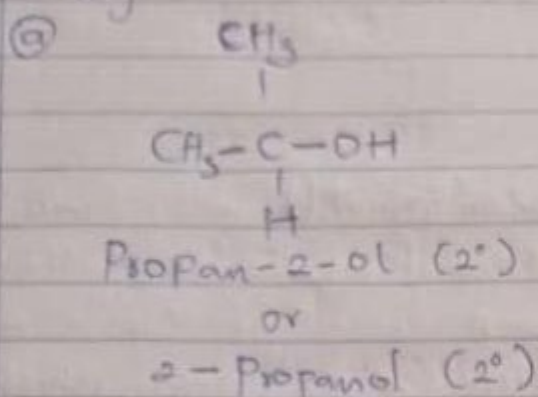 (a) CH3
|
CH3-C-OH
|
H
Propan-2-ol (2°)
or
2-Propanol (2°)